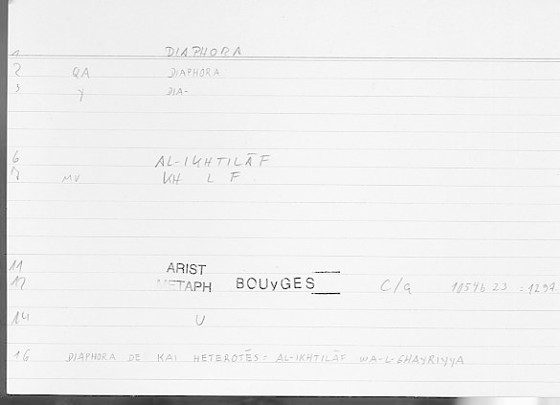 1 DIAPHORA
2 QA DIAPHORA
3 γ DIA-
6 AL-IKHTILĀF
7 MV KH L F
11 ARIST
12 METAPH BOUYGES C/a 1054b 23 = 1297.
14 U
16 DIAPHORA DE KAI HETEROTĒS = AL-IKHTILĀF WA-L-GHAYRIYYA